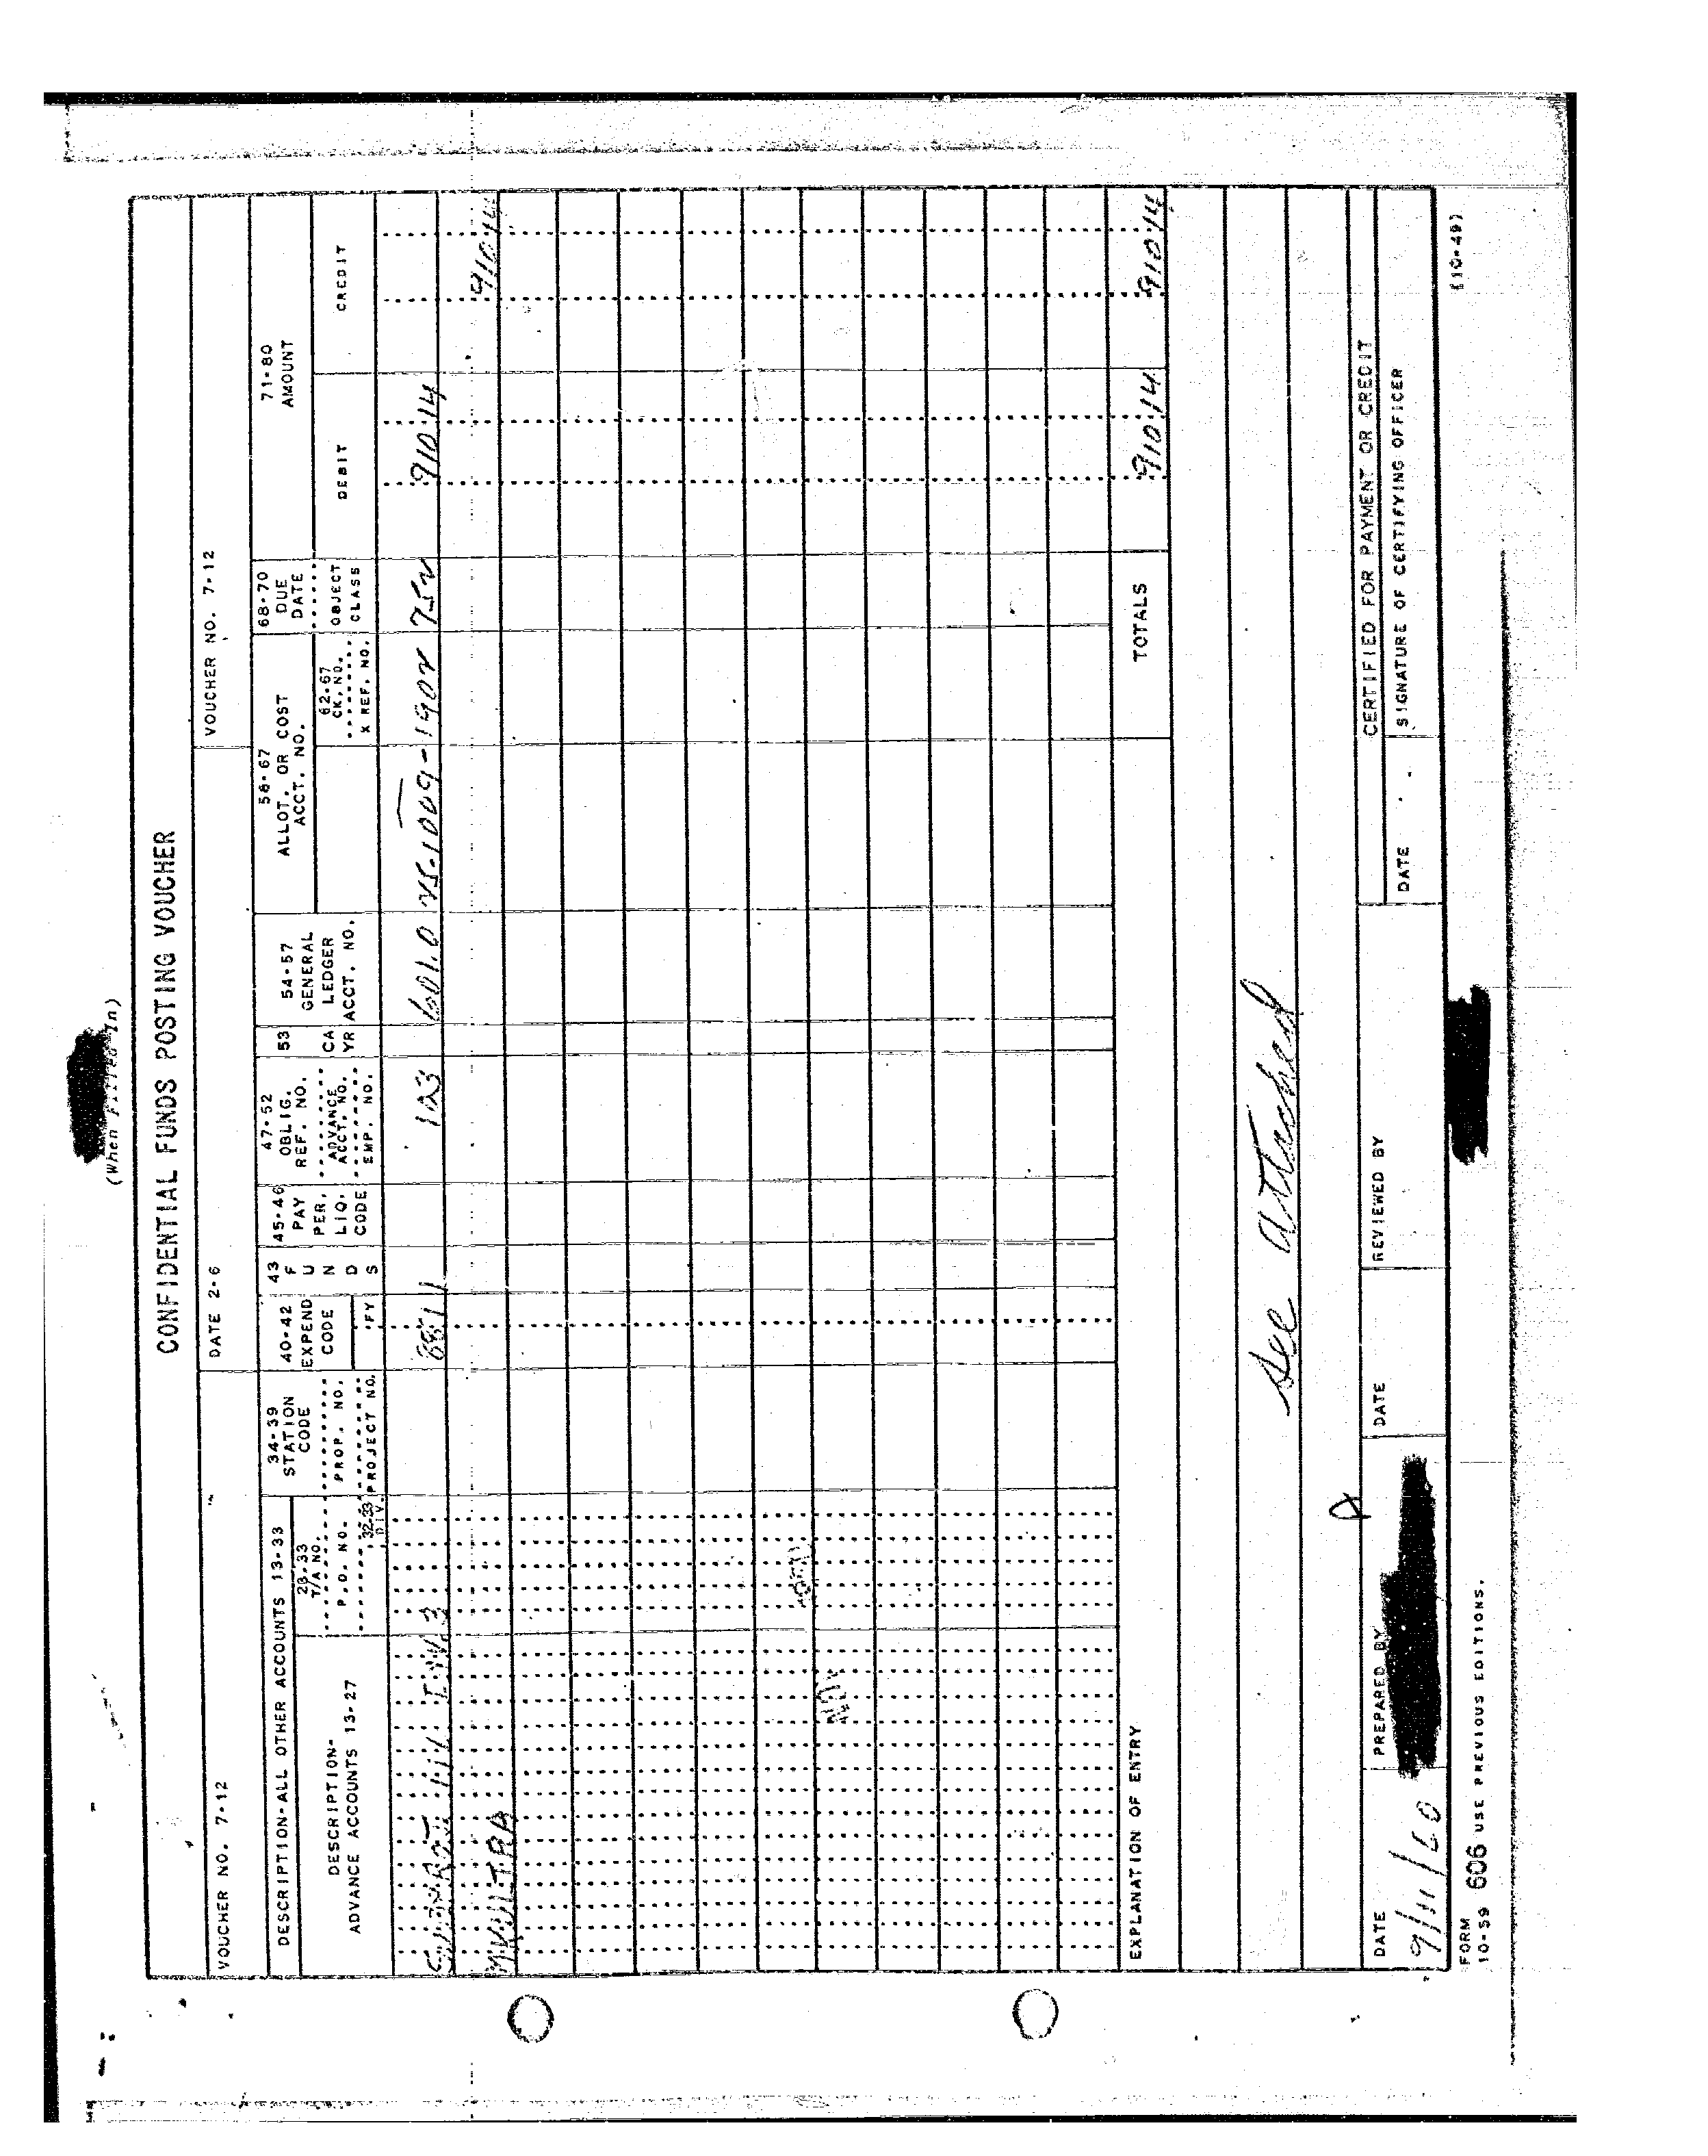 (When Filled In)
CONFIDENTIAL FUNDS POSTING VOUCHER
VOUCHER NO. 7-12 DATE 2-6 VOUCHER NO. 7-12
DESCRIPTION-ALL OTHER ACCOUNTS 13-33
DESCRIPTION-
ADVANCE ACCOUNTS 13-27
28-33
T/A NO.
P.O. NO.
32-33
DIV.
34-39
STATION
CODE
PROP. NO.
PROJECT NO.
40-42
EXPEND
CODE
FY
43
F
U
N
D
S
45-46
PAY
PER.
LIQ.
CODE
47-52
OBLIG.
REF. NO.
ADVANCE
ACCT. NO.
EMP. NO.
53
CA
YR
54-57
GENERAL
LEDGER
ACCT. NO.
58-67
ALLOT. OR COST
ACCT. NO.
62-67
CK. NO.
X REF. NO.
68-70
DUE
DATE
OBJECT
CLASS
71-80
AMOUNT
DEBIT CREDIT
111 INV. 3 1 123 601.0 25-1009-1902 752 910 14
MKULTRA 910 14
TOTALS 910 14 910 14
EXPLANATION OF ENTRY
see attached
CERTIFIED FOR PAYMENT OR CREDIT
DATE PREPARED BY DATE REVIEWED BY DATE SIGNATURE OF CERTIFYING OFFICER
9/11/60
FORM
10-59 606 USE PREVIOUS EDITIONS. (10-49)